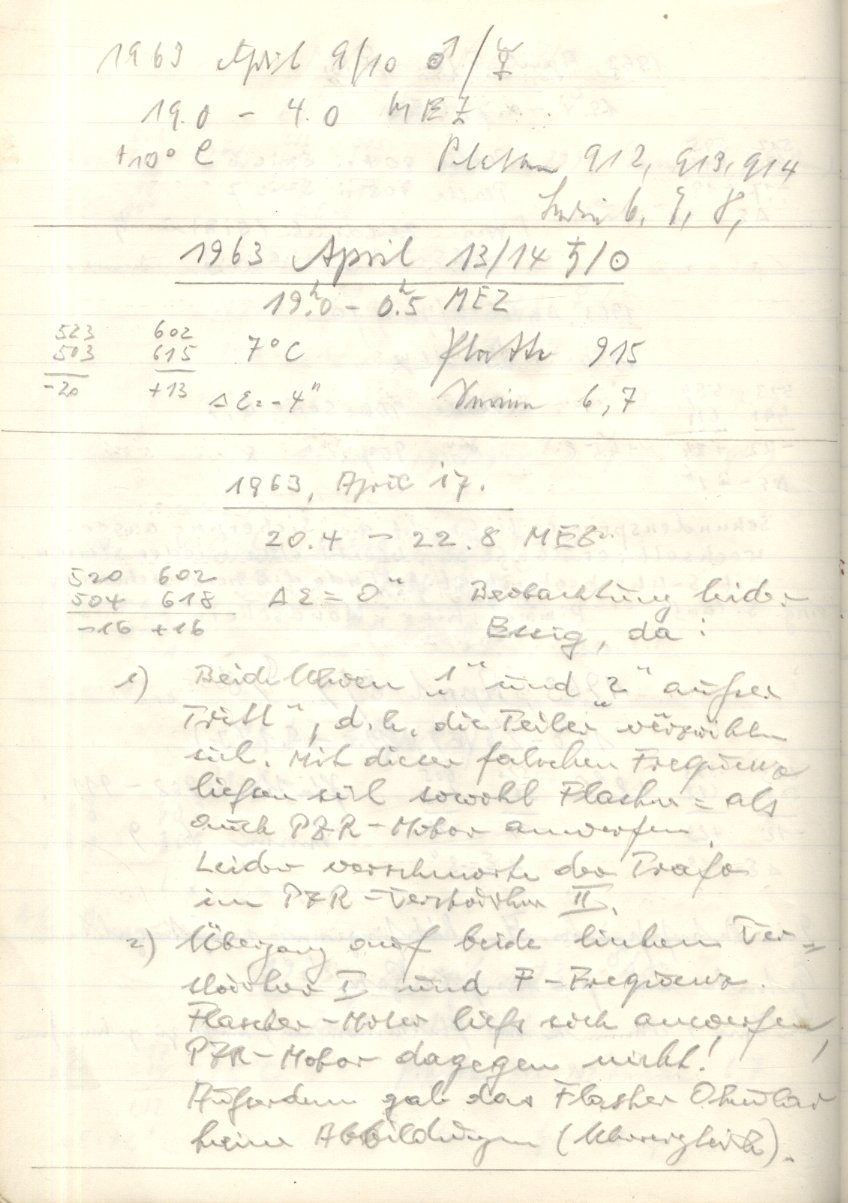 1963 April 9/10 ♂/☿
19.0 - 4.0 MEZ
+10° C Platten 912, 913, 914
6, 7, 8,
1963 April 13/14 ♄/☉
19ʰ.0 - 0ʰ.5 MEZ
523 602
503 615 7°C Platte 915
-20 +13 Δε = -4" 6, 7
1963, April 17.
20.4 - 22.8 MEZ
520 602
504 618 Δε = 0" Beobachtung leider
-16 +16 Essig, da:
1) Beide Uhren "1" und 2" außer
Tritt", d.h. die Teiler verzählten
sich. Mit dieser falschen Frequenz
ließen sich sowohl Flasher= als
auch PZR-Motor anwerfen.
Leider verschmorte der Trafo
im PZR-Verstärker II.
2) Übergang auf beide linken Ver=
stärker I und F-Frequenz.
Flascher-Motor ließ sich anwerfen,
PZR-Motor dagegen nicht!
Außerdem gab das Flasher Okular
keine Abbildungen (Uhrvergleich).